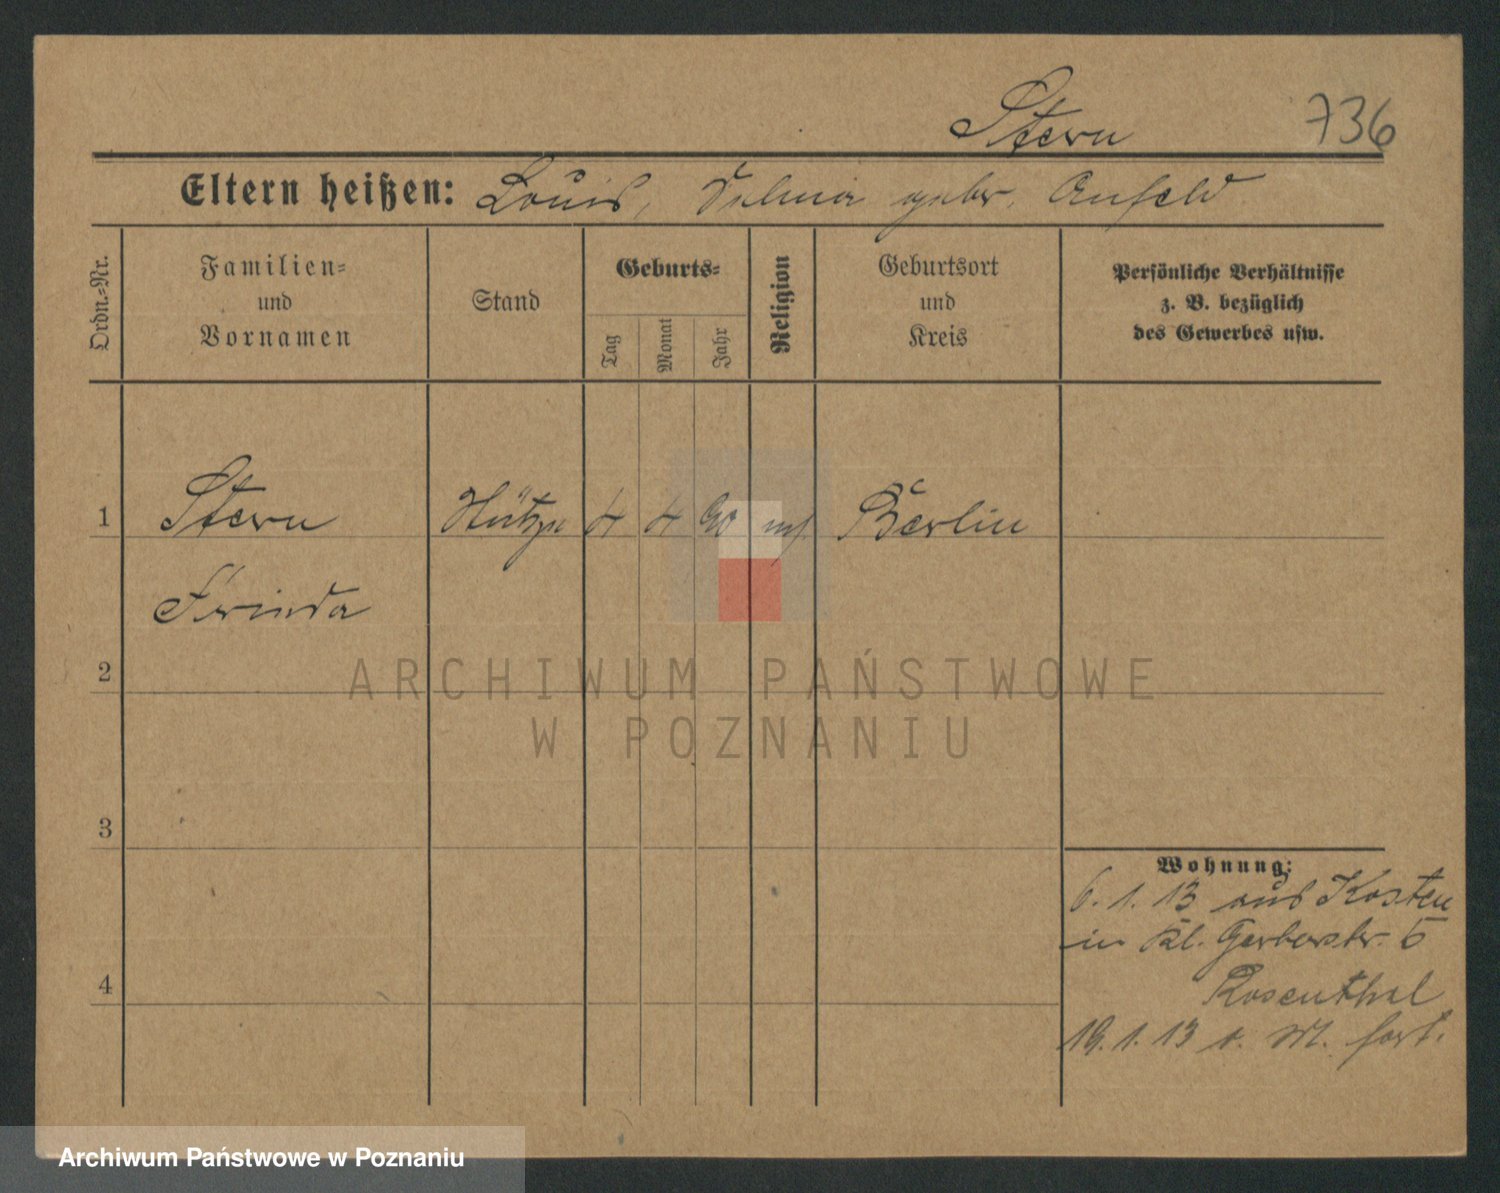 Stern 736
Eltern heißen: Louis, Selma gebr. Anfeld
Ordn.=Nr.
Familien=
und
Vornamen
Stand
Geburts=
Tag
Monat
Jahr
Religion
Geburtsort
und
Kreis
Persönliche Verhältnisse
z. B. bezüglich
des Gewerbes usw.
1 Stern 4 4 90 Berlin
Frieda
2
ARCHIWUM PAŃSTWOWE
W POZNANIU
3
Wohnung:
6. 1. 13 aus Kosten
in Kl. Gerberstr. 6
4
Rosenthal
19. 1. 13 o. M. fort.
Archiwum Państwowe w Poznaniu